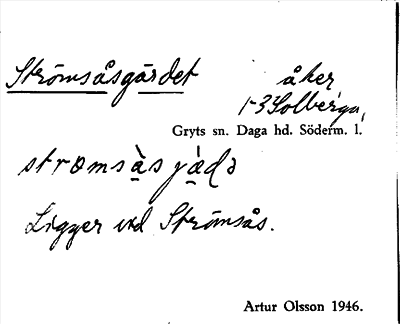 Strömsåsgärdet åker
1-3 Solberga,
Gryts sn. Daga hd. Söderm. l.
strømsàsjádə
Ligger vid Strömsås.
Artur Olsson 1946.